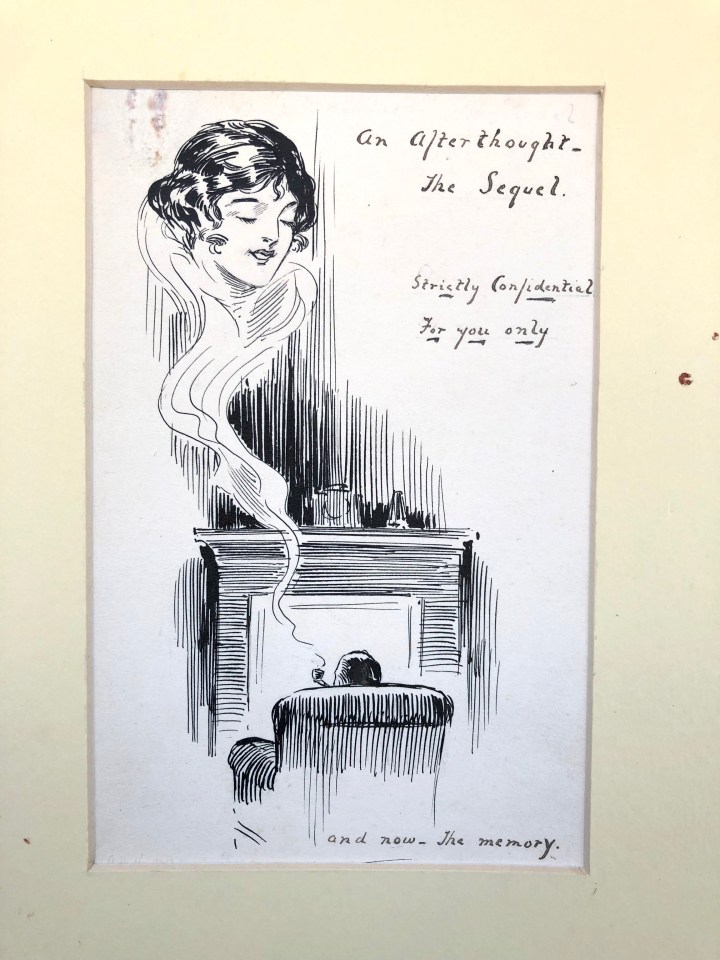 An Afterthought-
The Sequel.
Strictly Confidential
For you only
and now- The memory.